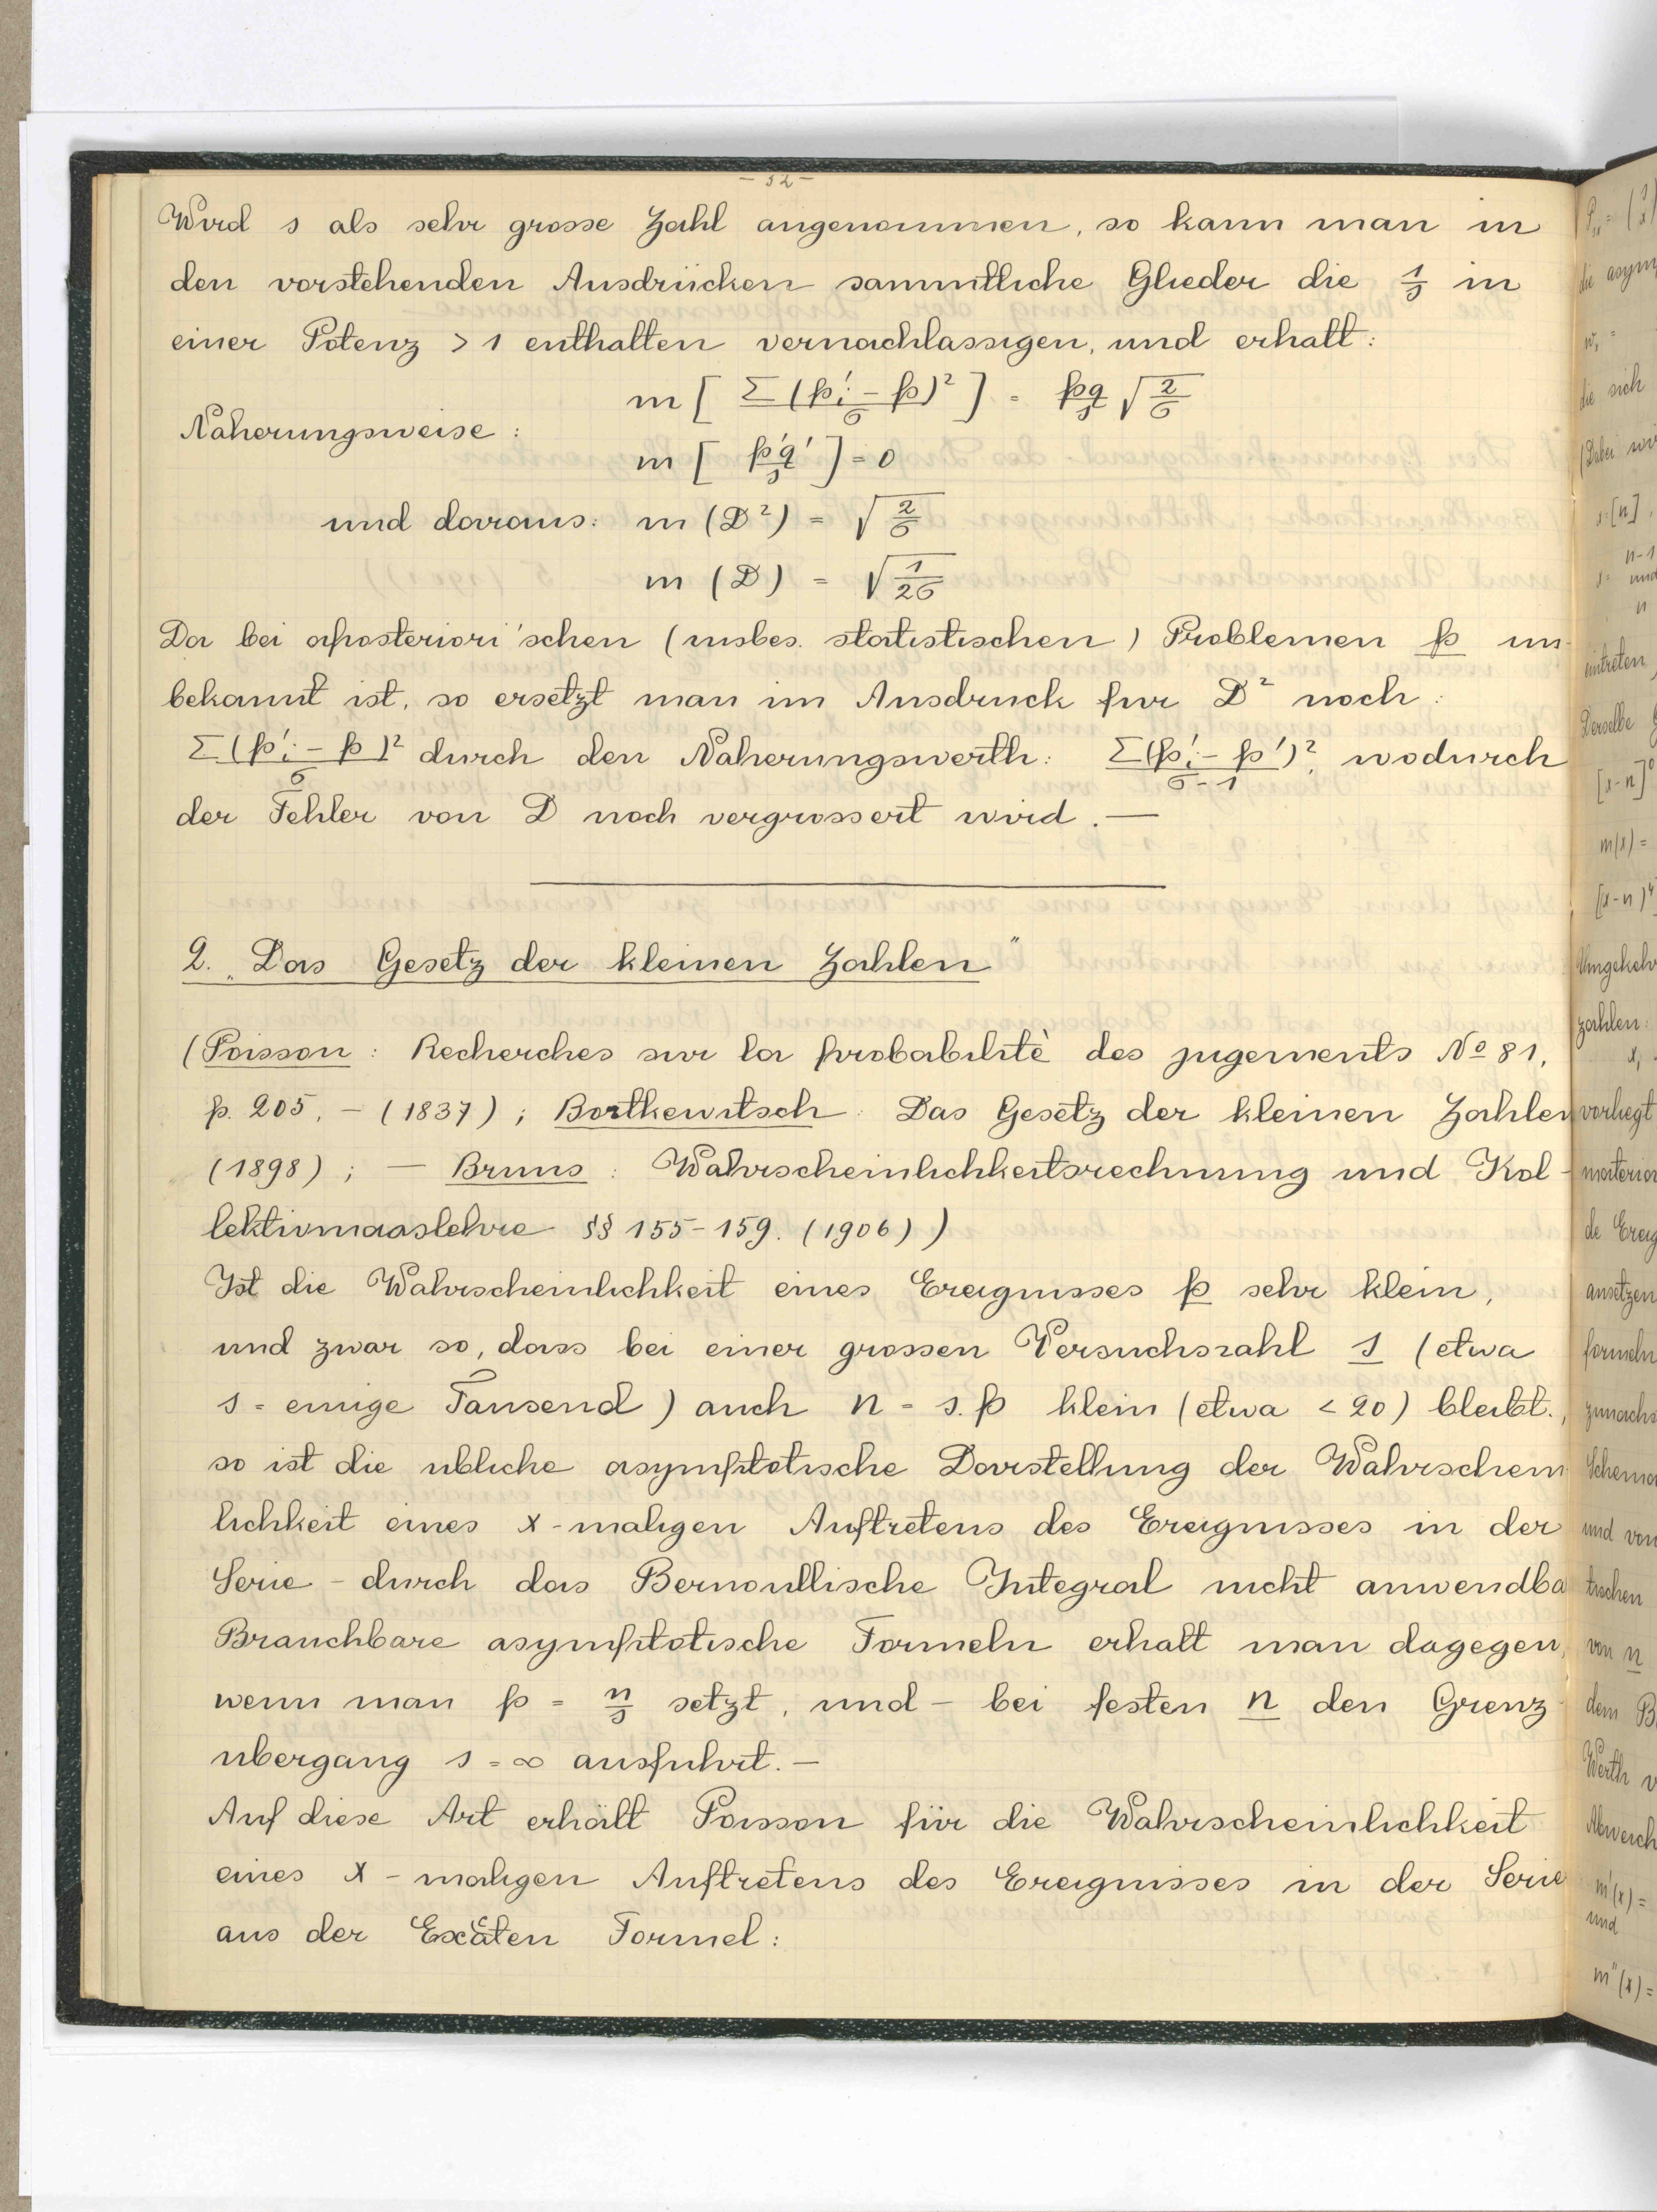 - 32 -
Wird s als sehr grosse Zahl angenommen, so kann man in
den vorstehenden Ausdrücken sammtliche Glieder die 1/s in
einer Potenz > 1 enthalten vernachlassigen, und erhalt:
m [ Σ(p'i - p)² / σ ] = pq/s √2/σ
Naherungsweise:
m [ p'q'/s ] = 0
und daraus: m (D²) = √2/σ
m (D) = √1/2σ
Da bei aposteriori'schen (insbes. statistischen) Problemen p un-
bekannt ist, so ersetzt man im Ausdruck fur D² noch:
Σ(p'i - p)² / σ durch den Naherungswerth: Σ(p'i - p')² / σ-1, wodurch
der Fehler von D noch vergrossert wird. —
2. „Das Gesetz der kleinen Zahlen"
(Poisson: Recherches sur la probabilitè des jugements No 81,
p. 205, - (1837); Bortkewitsch: Das Gesetz der kleinen Zahlen
(1898); — Bruns: Wahrscheinlichkeitsrechnung und Kol-
lektivmaaslehre §§ 155-159. (1906))
Ist die Wahrscheinlichkeit eines Ereignisses p sehr klein,
und zwar so, dass bei einer grossen Versuchszahl s (etwa
s = einige Tausend) auch n = s.p klein (etwa < 20) bleibt.,
so ist die ubliche asymptotische Darstellung der Wahrschein
lichkeit eines x-maligen Auftretens des Ereignisses in der
Serie - durch das Bernoullische Integral nicht anwendba
Brauchbare asymptotische Formeln erhalt man dagegen,
wenn man p = n/s setzt, und - bei festen n den Grenz-
ubergang s = ∞ ausfuhrt. —
Auf diese Art erhält Poisson für die Wahrscheinlichkeit
eines x-maligen Auftretens des Ereignisses in der Serie
aus der Exacten Formel:
die asym
w₁ =
die sich
(Dabei wi
s=[n]
n-1
und
n
eintreten,
Derselbe
m(x) =
Umgekehr
zahlen:
vorliegt
materia
de Ereig
ansetzen
formeln
zunachs
Schema
und von
tischen
von n
dem B
Werth v
Abweich
m'(x) =
und
m"(x) =